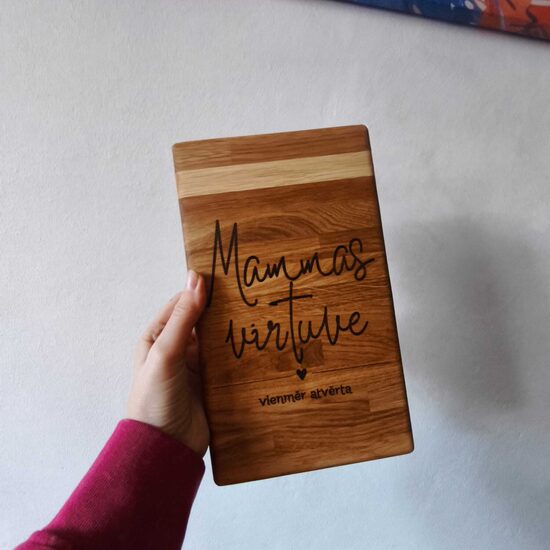 Mammas
virtuve
vienmēr atvērta